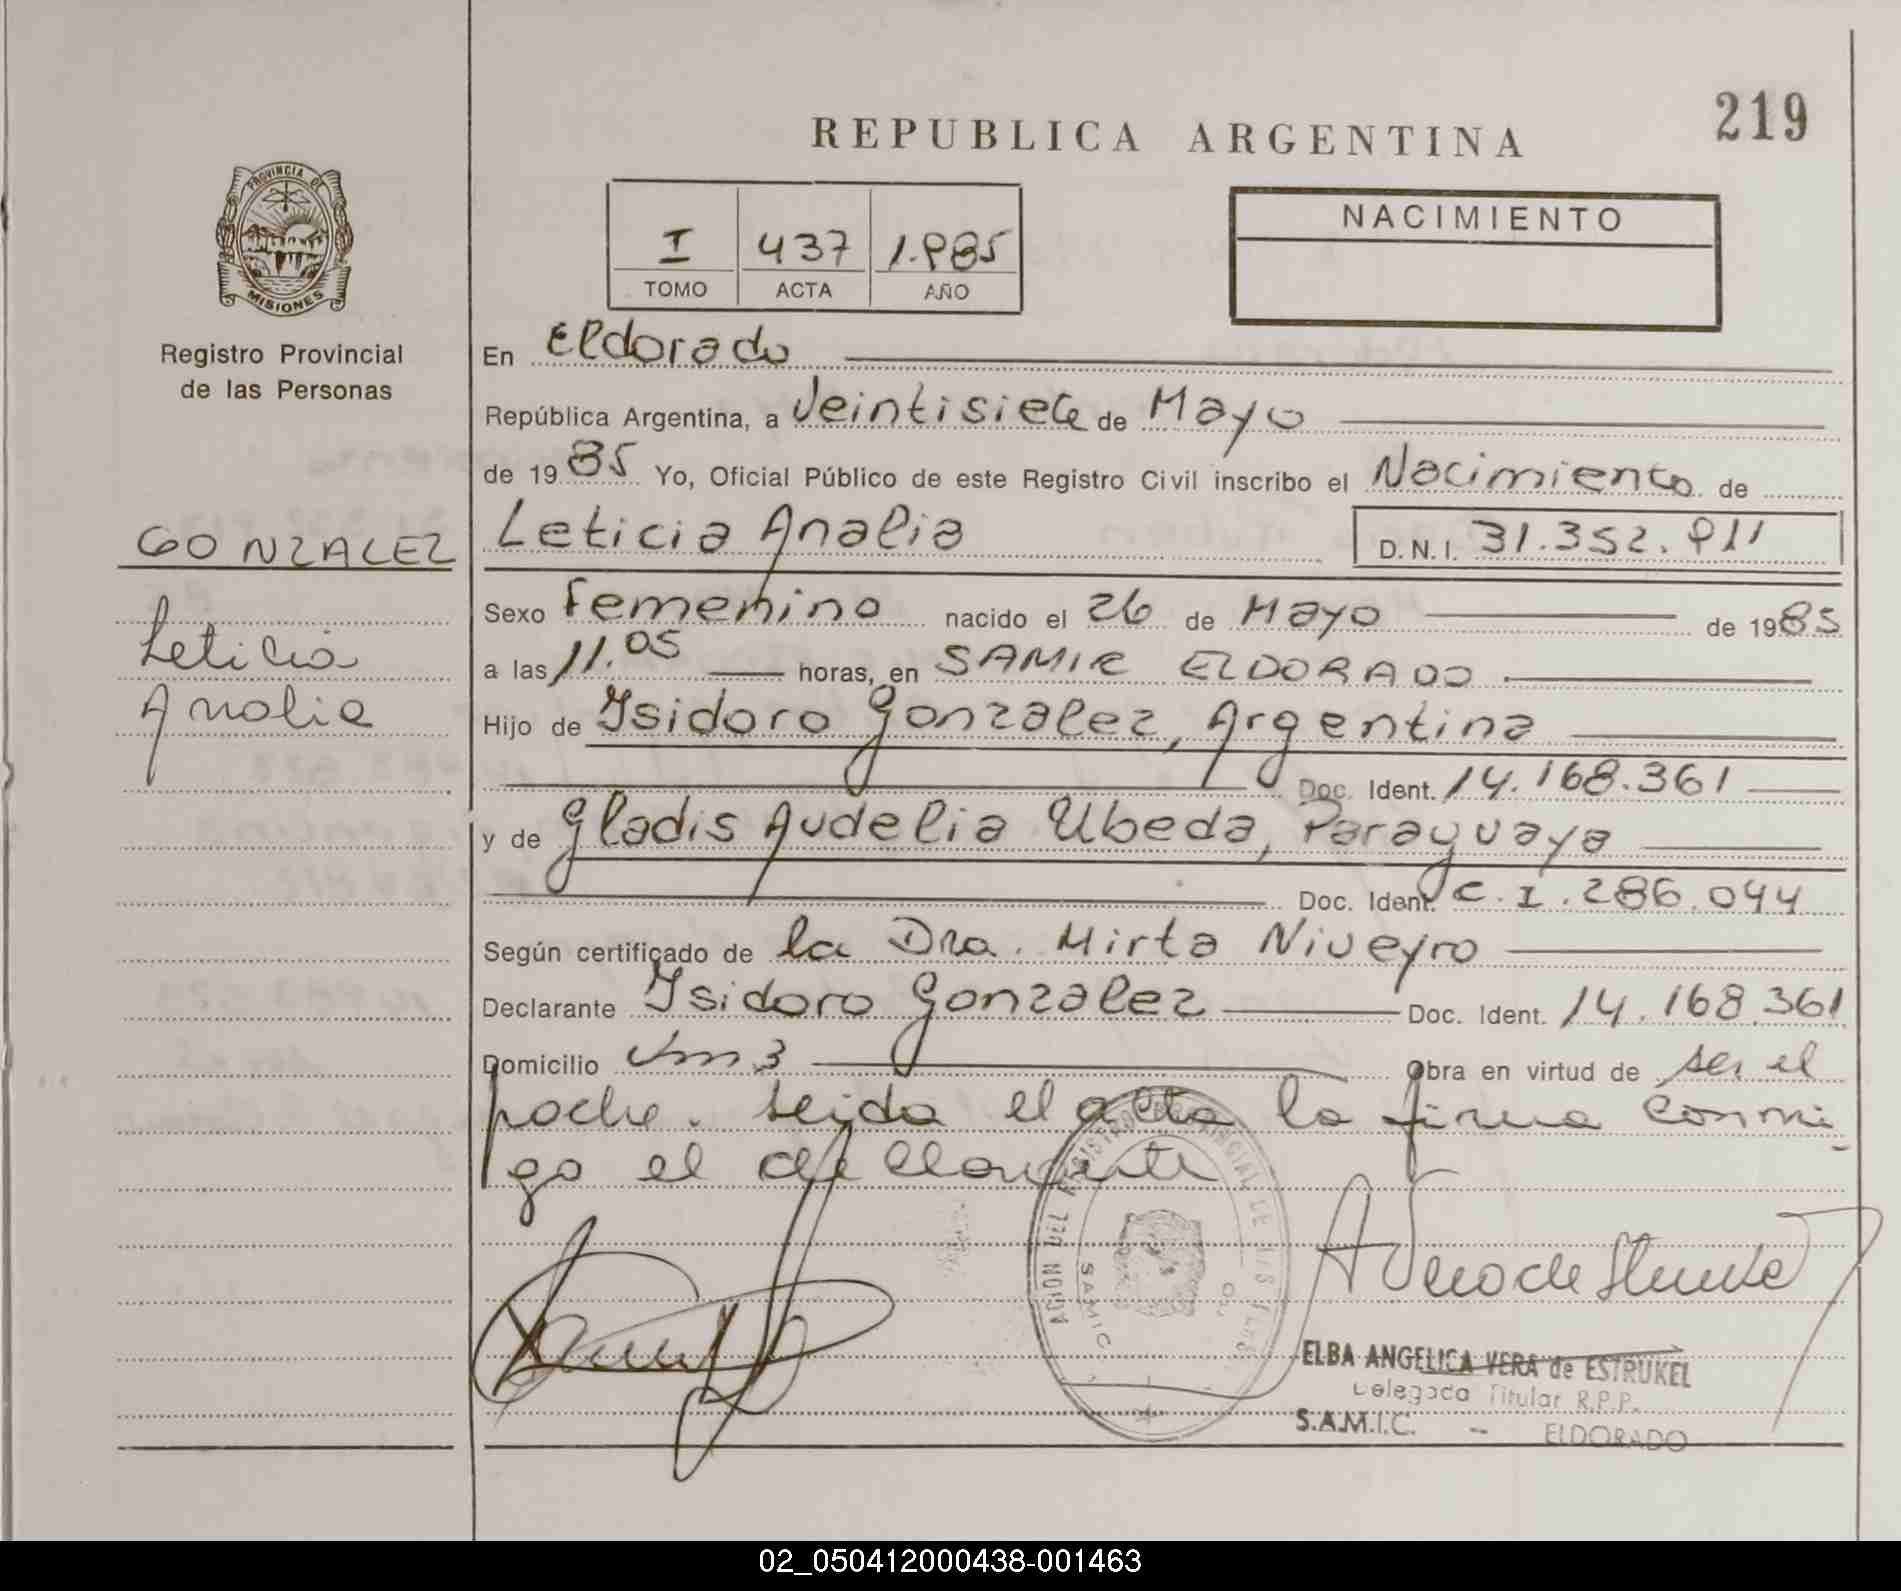 219
REPUBLICA ARGENTINA
PROVINCIA DE
MISIONES
Registro Provincial
de las Personas
I 437 1.985
TOMO ACTA AÑO
NACIMIENTO
En Eldorado
República Argentina, a Veintisiete de Mayo
de 1985 Yo, Oficial Público de este Registro Civil inscribo el Nacimiento de
GONZALEZ
Leticia Analia
Leticia Analia D.N.I. 31.352.911
Sexo Femenino nacido el 26 de Mayo de 1985
a las 11.05 horas, en SAMIC ELDORADO
Hijo de Isidoro Gonzalez, Argentina
Doc. Ident. 14.168.361
y de Gladis Audelia Ubeda, Paraguaya
Doc. Ident. C.I. 286.044
Según certificado de la Dra. Mirta Niveyro
Declarante Isidoro Gonzalez Doc. Ident. 14.168.361
Domicilio Km 3 Obra en virtud de ser el
padre. Leida el acta la firma conmi-
go el declarante
SAMIC
ELBA ANGELICA VERA de ESTRUKEL
Delegada Titular R.P.P.
S.A.M.I.C. - ELDORADO
02_050412000438-001463